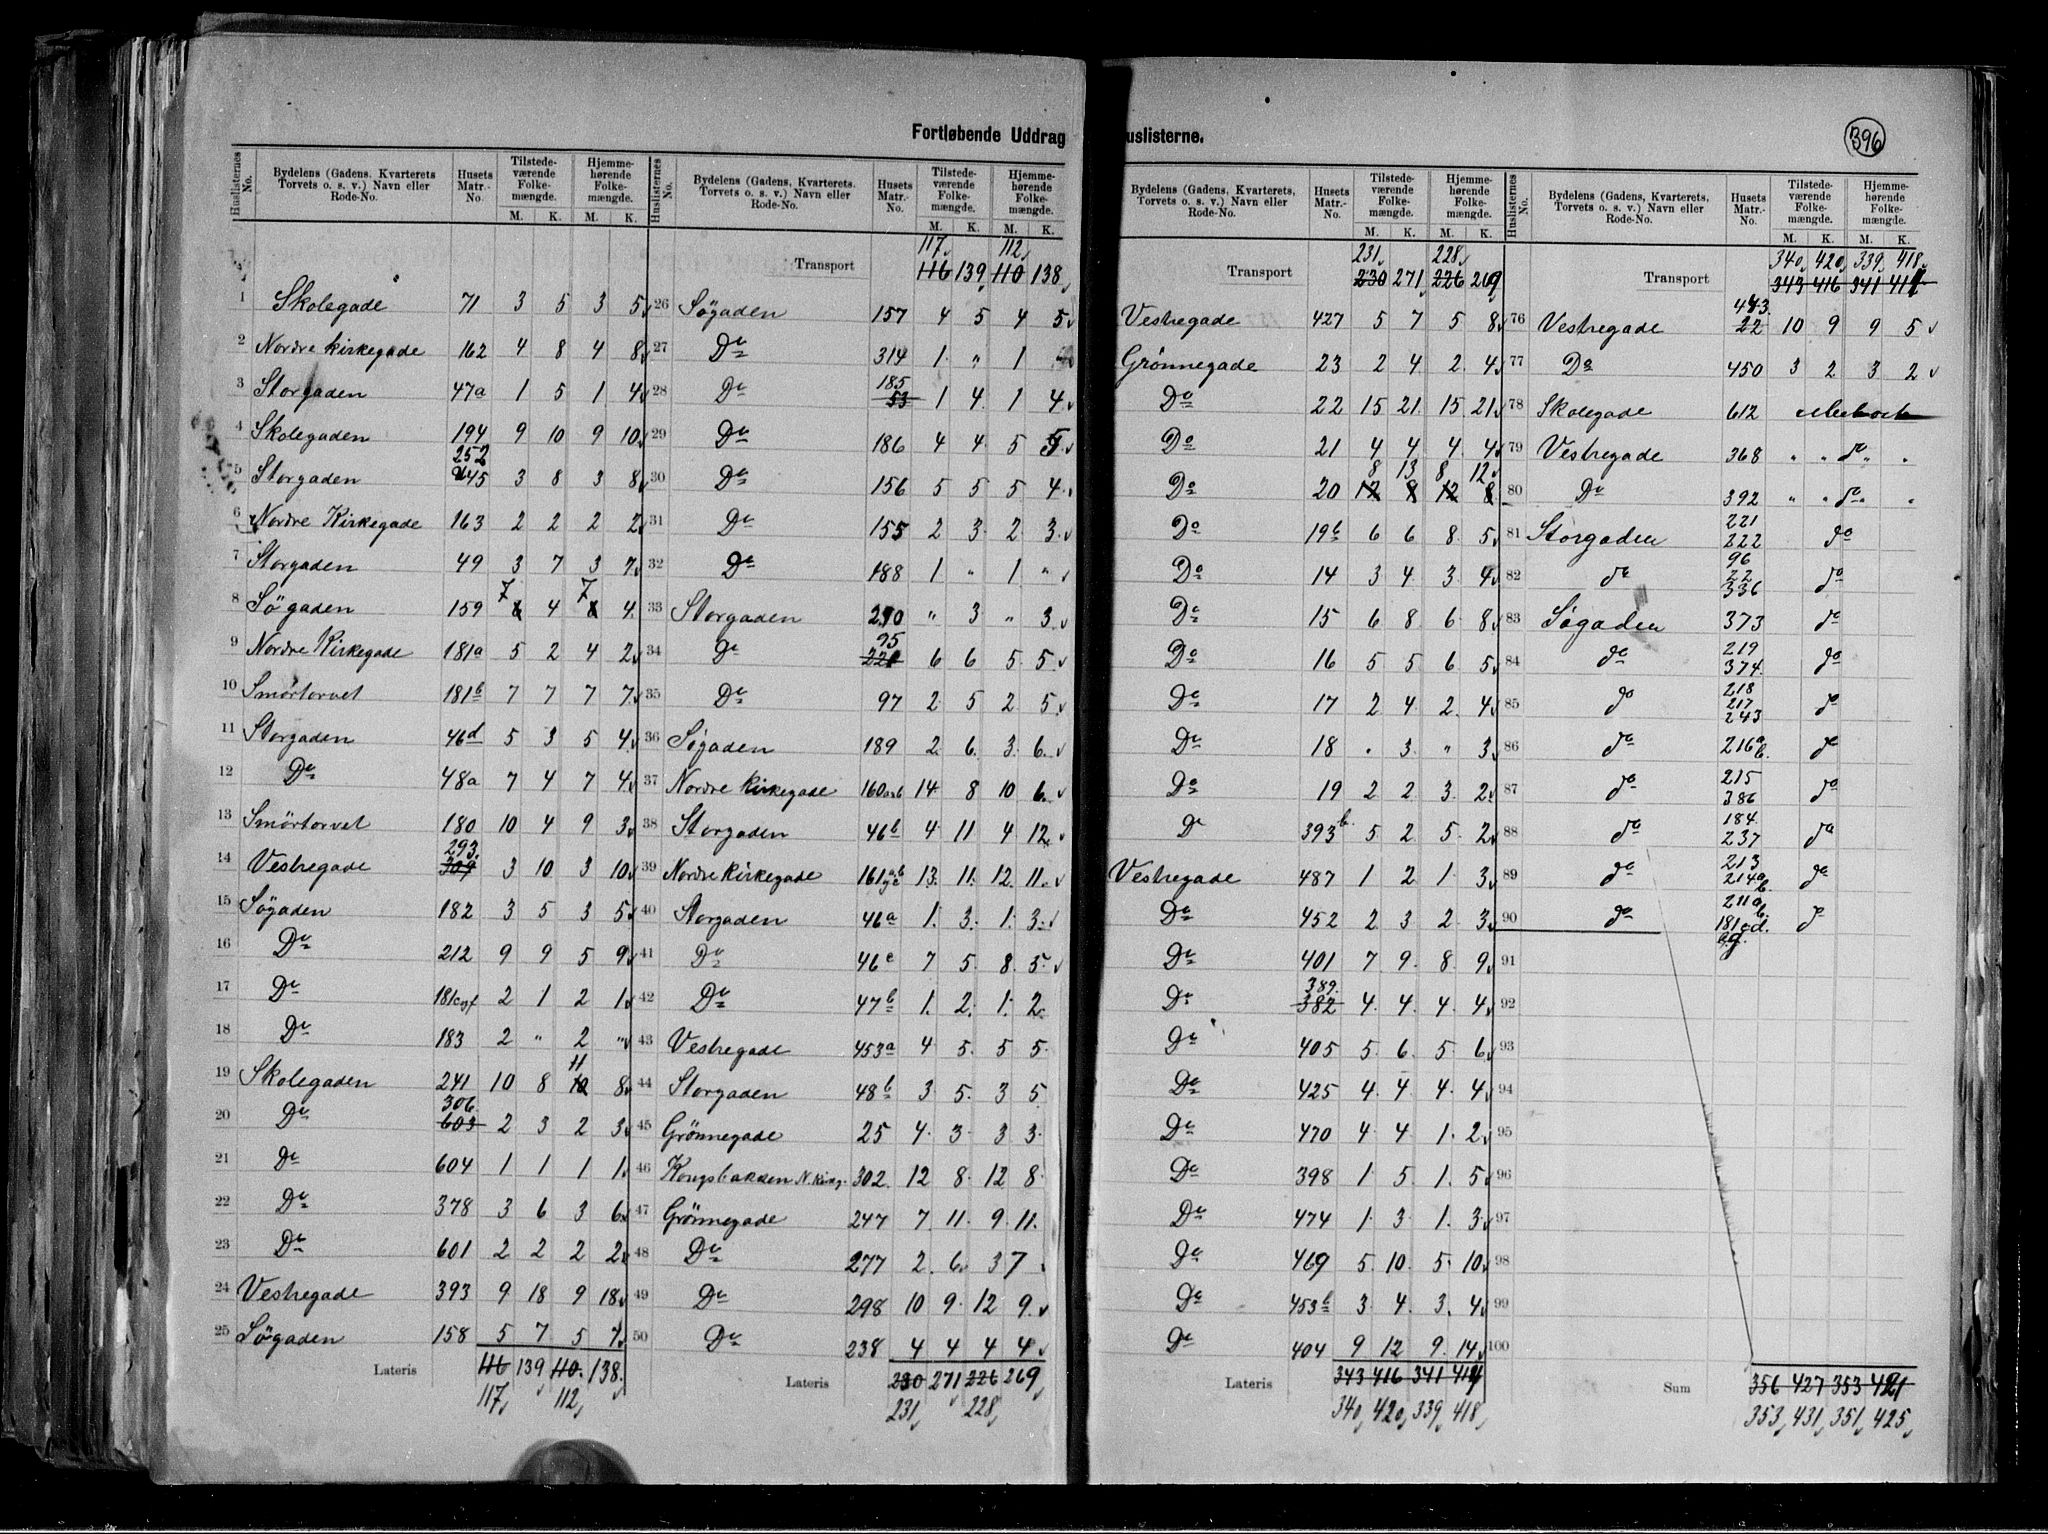 396
Fortløbende Uddrag
uslisterne.
Huslisternes No. Bydelens (Gadens, Kvarterets Torvets o. s. v.) Navn eller Rode-No. Husets Matr.-No. Tilstede-værende Folke-mængde. M. K. Hjemme-hørende Folke-mængde. M. K.
1 Skolegade 71 3 5 3 5
2 Nordre Kirkegade 162 4 8 4 8
3 Storgaden 47a 1 5 1 4
4 Skolegaden 194 9 10 9 10
5 Storgaden 252 45 3 8 3 8
6 Nordre Kirkegade 163 2 2 2 2
7 Storgaden 49 3 7 3 7
8 Søgaden 159 7 4 7 4
9 Nordre Kirkegade 181a 5 2 4 2
10 Smörtorvet 181b 7 7 7 7
11 Storgaden 46d 5 3 5 4
12 Do 48a 7 4 7 4
13 Smörtorvet 180 10 4 9 3
14 Vestregade 293 309 3 10 3 10
15 Søgaden 182 3 5 3 5
16 Do 212 9 9 5 9
17 Do 181 2 1 2 1
18 Do 183 2 " 2 "
19 Skolegaden 241 10 8 11 10 8
20 Do 306 603 2 3 2 3
21 Do 604 1 1 1 1
22 Do 378 3 6 3 6
23 Do 601 2 2 2 2
24 Vestregade 393 9 18 9 18
25 Søgaden 158 5 7 5 7
Lateris 116 139 110 138
117 112
Huslisternes No. Bydelens (Gadens, Kvarterets. Torvets o. s. v.) Navn eller Rode-No. Husets Matr.-No. Tilstede-værende Folke-mængde. M. K. Hjemme-hørende Folke-mængde. M. K.
117 112
Transport 116 139 110 138
26 Søgaden 157 4 5 4 5
27 Do 314 1 " 1
28 Do 185 53 1 4 1 4
29 Do 186 4 4 5 5
30 Do 156 5 5 5 4
31 Do 155 2 3 2 3
32 Do 188 1 " 1 "
33 Storgaden 210 " 3 " 3
34 Do 221 6 6 5 5
35 Do 97 2 5 2 5
36 Søgaden 189 2 6 3 6
37 Nordre Kirkegade 160 14 8 10 6
38 Storgaden 46b 4 11 4 12
39 Nordre Kirkegade 161 13 11 12 11
40 Storgaden 46a 1 3 1 3
41 Do 46c 7 5 8 5
42 Do 47b 1 2 1 2
43 Vestregade 453a 4 5 5 5
44 Storgaden 48b 3 5 3 5
45 Grönnegade 25 4 3 3 3
46 Kongsbakken N. Kirkg. 302 12 8 12 8
47 Grönnegade 247 7 11 9 11
48 Do 277 2 6 3 7
49 Do 298 10 9 12 9
50 Do 238 4 4 4 4
Lateris 230 271 226 269
231 228
Bydelens (Gadens, Kvarterets, Torvets o. s. v.) Navn eller Rode-No. Husets Matr.-No. Tilstede-værende Folke-mængde. M. K. Hjemme-hørende Folke-mængde. M. K.
231 228
Transport 230 271 226 269
Vestregade 427 5 7 5 8
Grønnegade 23 2 4 2 4
Do 22 15 21 15 21
Do 21 4 4 4 4
8 13 8 12
Do 20 12 8 12 8
Do 19b 6 6 8 5
Do 14 3 4 3 4
Do 15 6 8 6 8
Do 16 5 5 6 5
Do 17 2 4 2 4
Do 18 " 3 " 3
Do 19 2 2 3 2
Do 393b 5 2 5 2
Vestregade 487 1 2 1 3
Do 452 2 3 2 3
Do 401 7 9 8 9
Do 389 382 4 4 4 4
Do 405 5 6 5 6
Do 425 4 4 4 4
Do 470 4 4 1 2
Do 398 1 5 1 5
Do 474 1 3 1 3
Do 469 5 10 5 10
Do 453b 3 4 3 4
Do 404 9 12 9 14
Lateris 343 416 341 414
340 420 339 418
Huslisternes No. Bydelens (Gadens, Kvarterets, Torvets o. s. v.) Navn eller Rode-No. Husets Matr.-No. Tilstede-værende Folke-mængde. M. K. Hjemme-hørende Folke-mængde. M. K.
340 420 339 418
Transport 343 416 341 414
76 Vestregade 443 22 10 9 9 5
77 Do 450 3 2 3 2
78 Skolegade 612 ubeboet
79 Vestregade 368 " " do " "
80 Do 392 " " do " "
81 Storgaden 221 222 do
82 do 96 22 336 do
83 Søgaden 373 do
84 do 219 374 do
85 do 218 217 243 do
86 do 216a b. do
87 do 215 386 do
88 do 184 237 do
89 do 213 214a b. do
90 do 211a b. 181 do
91
92
93
94
95
96
97
98
99
100
Sum 356 427 353 421
353 431 351 425